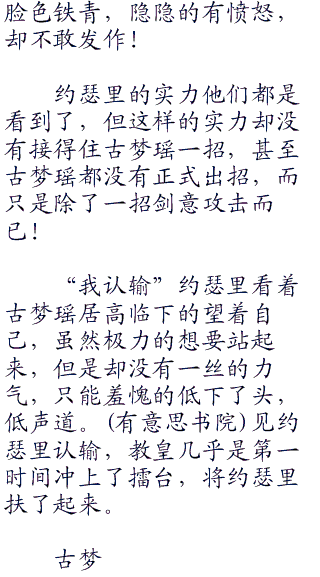 脸色铁青，隐隐的有愤怒，
却不敢发作！
约瑟里的实力他们都是
看到了，但这样的实力却没
有接得住古梦瑶一招，甚至
古梦瑶都没有正式出招，而
只是除了一招剑意攻击而
已！
“我认输”约瑟里看着
古梦瑶居高临下的望着自
己，虽然极力的想要站起
来，但是却没有一丝的力
气，只能羞愧的低下了头，
低声道。(有意思书院)见约
瑟里认输，教皇几乎是第一
时间冲上了擂台，将约瑟里
扶了起来。
古梦